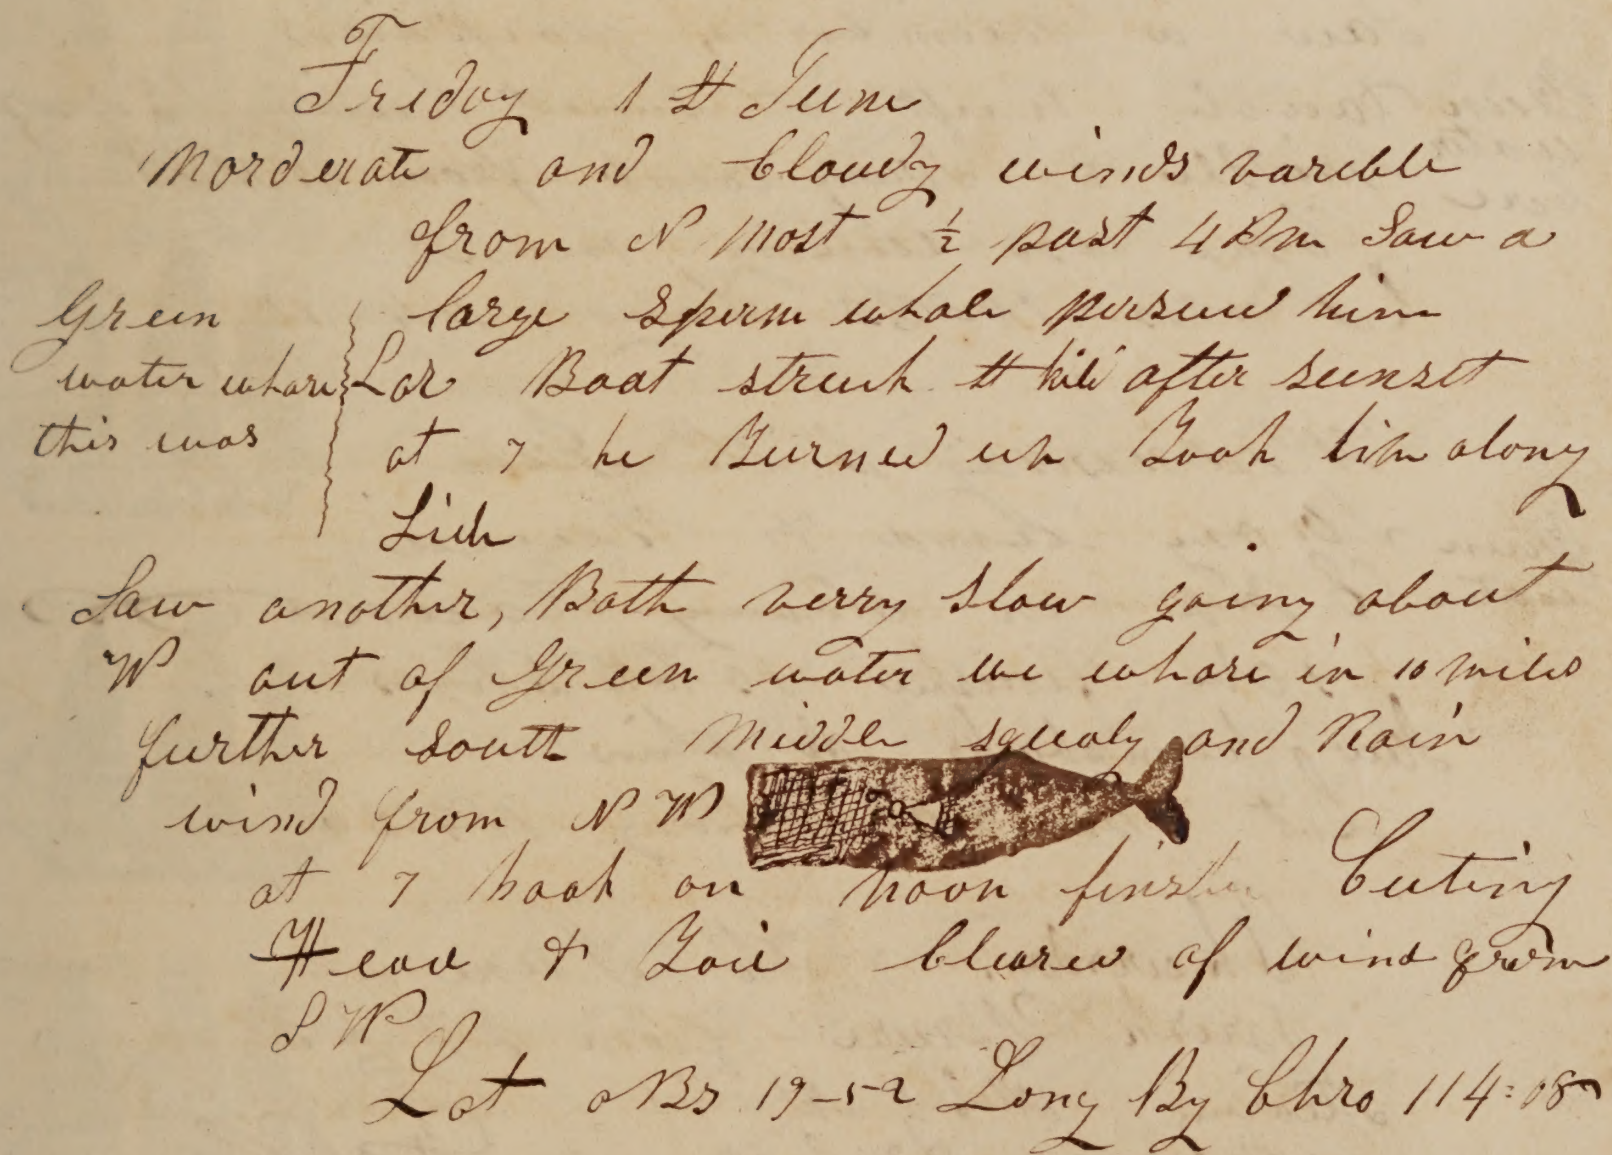 Friday 1st June
Morderate and Cloudy winds vareble
from N most ½ past 4 Pm Saw a
large Sperm whale persued him
Lar Boat struck after sunset
at 7 he Turned up Took him along
Side
Green
water whare
this was
Saw another, Both verry Slow going about
W out of Green water we whare in 10 miles
further south Middle squaly and Rain
wind from N W
at 7 hook on noon finsh Cuting
Head & Tail Cleared of wind from
S W
Lat Obs 19-52 Long By Chro 114:08